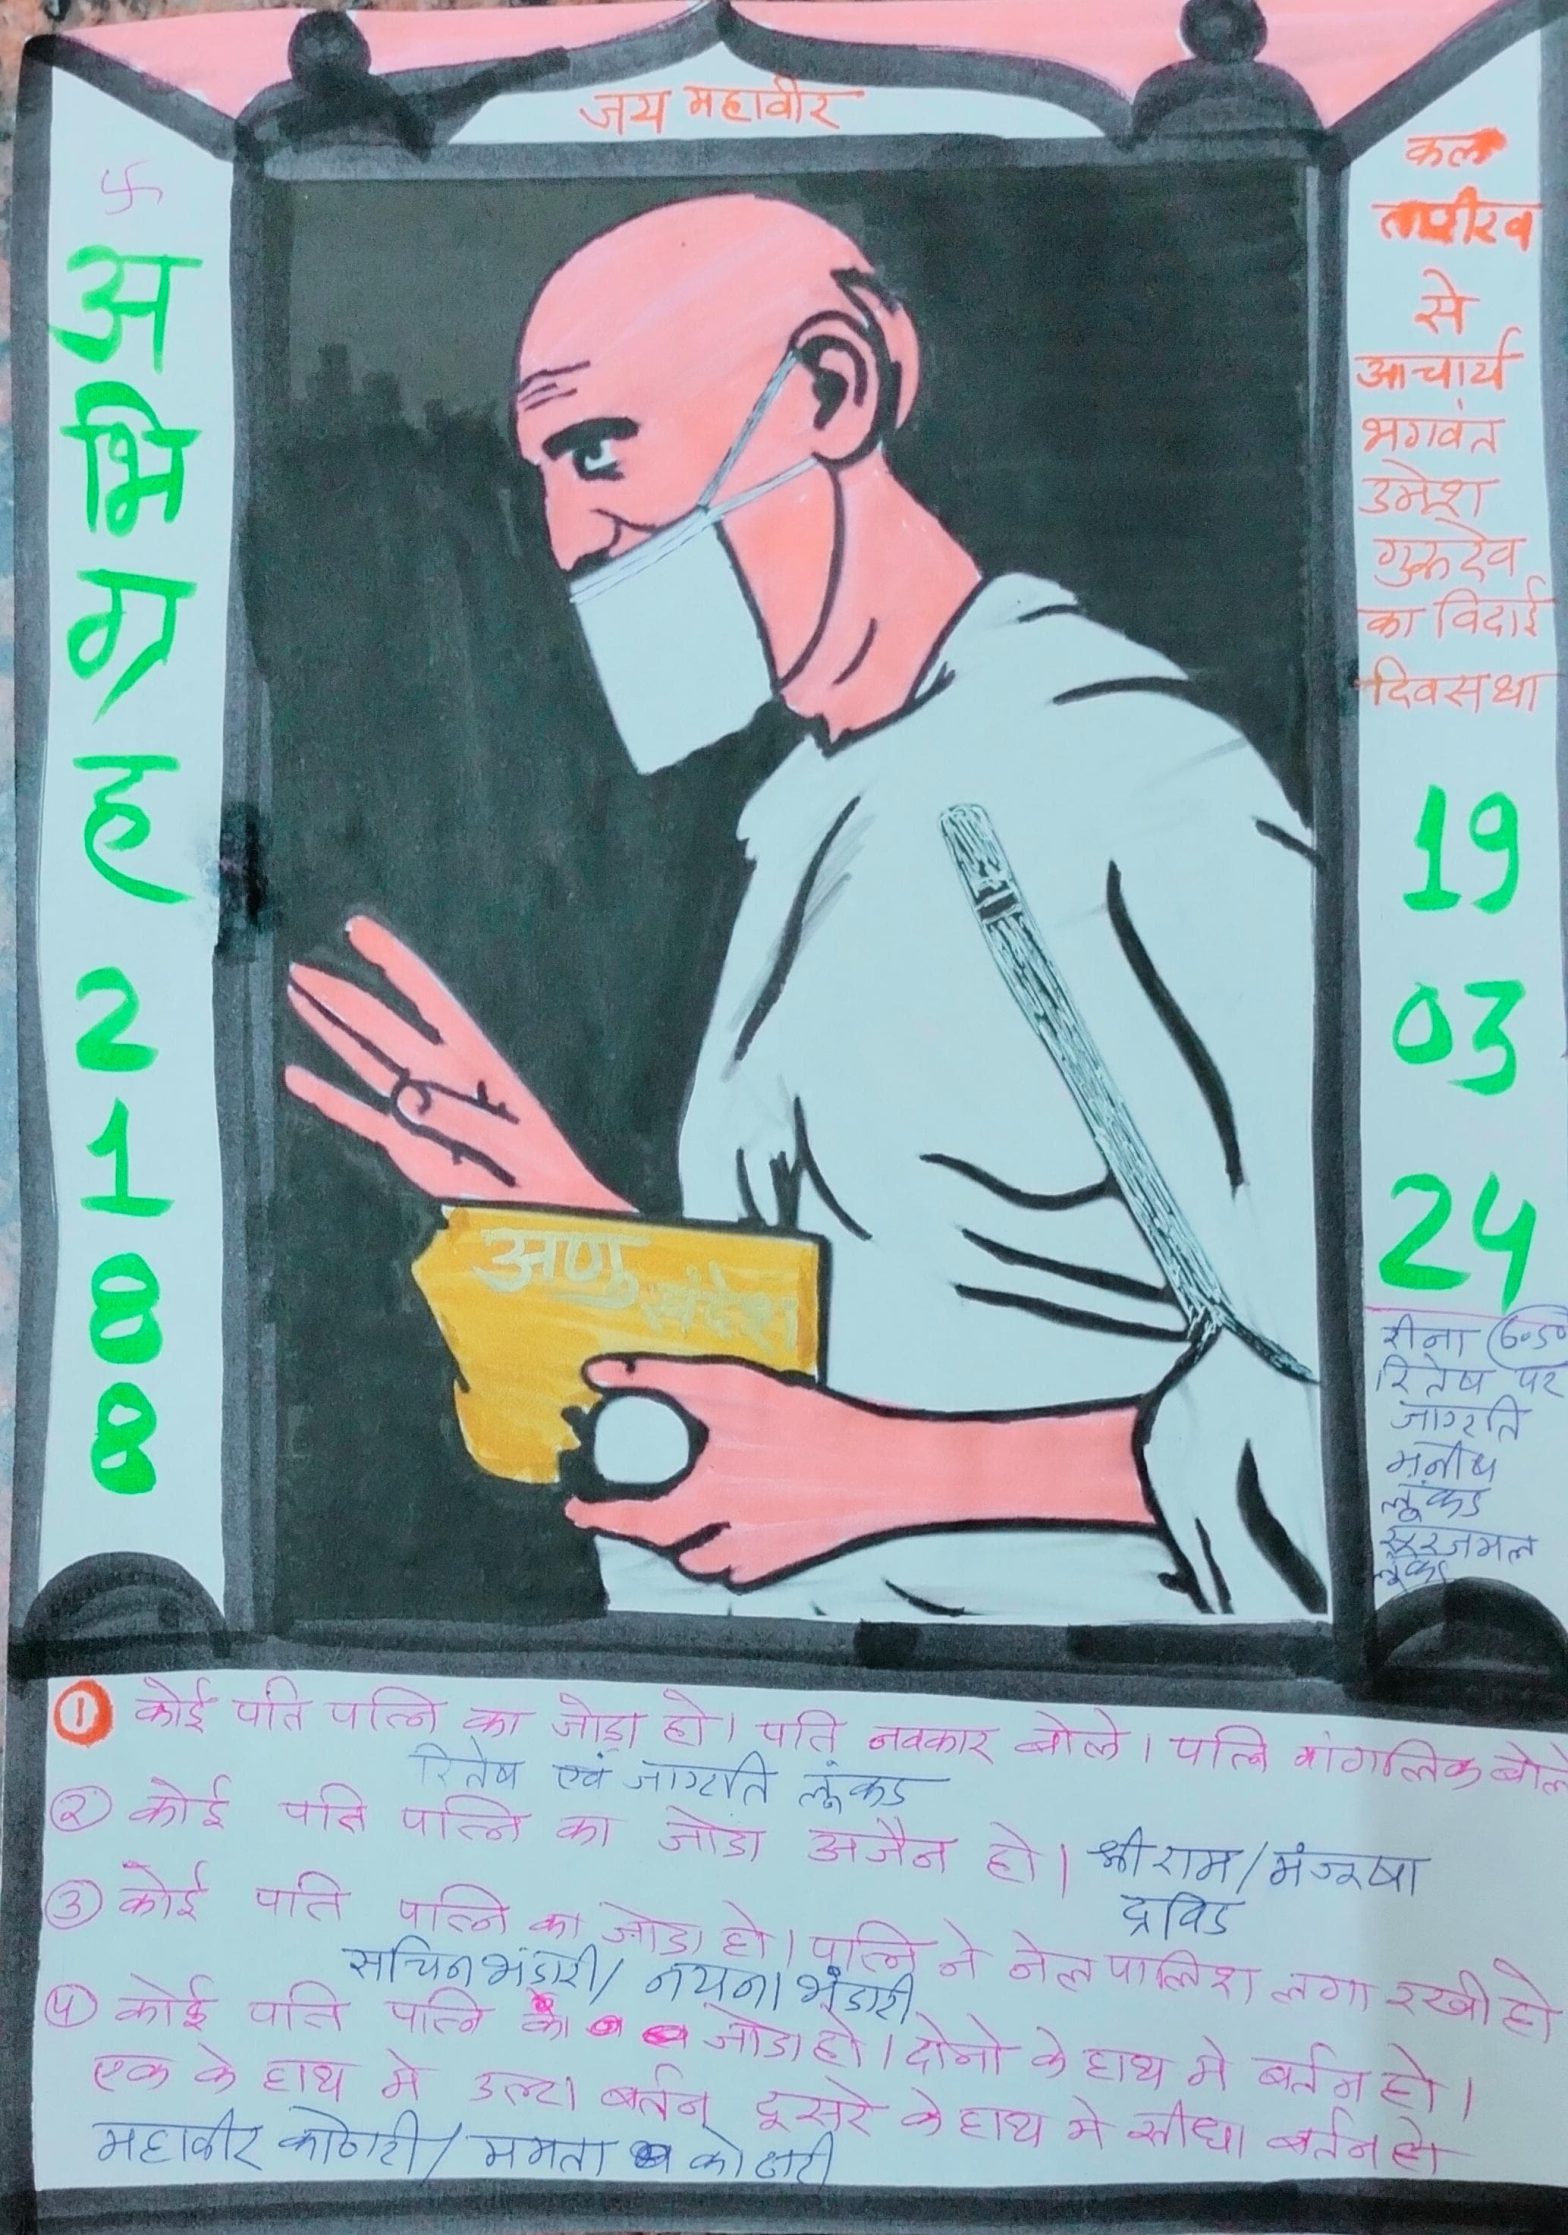 जय महावीर
अ
भि
ग्र
ह
2
1
8
8
कल
तारीख
से
आचार्य
भगवंत
उमेश
गुरूदेव
का विदाई
दिवस था
19
03
24
रीना 6.50
रितेष पर
जाग्रति
मनीष
लूंकड
सूरजमल
लूंकड
अणु
संदेश
① कोई पति पत्नि का जोड़ा हो। पति नवकार बोले। पत्नि मांगलिक बोले
रितेष एवं जाग्रति लूंकड
② कोई पति पत्नि का जोडा अजैन हो। श्रीराम/मंजूषा
द्रविड
③ कोई पति पत्नि का जोडा हो। पत्नि ने नेलपालिश लगा रखी हो
सचिन भंडारी/ नयना भंडारी
④ कोई पति पत्नि का जोडा हो। दोनो के हाथ मे बर्तन हो।
एक के हाथ मे उल्टा बर्तन दूसरे के हाथ मे सीधा बर्तन हो
महावीर कोठारी/ ममता कोठारी